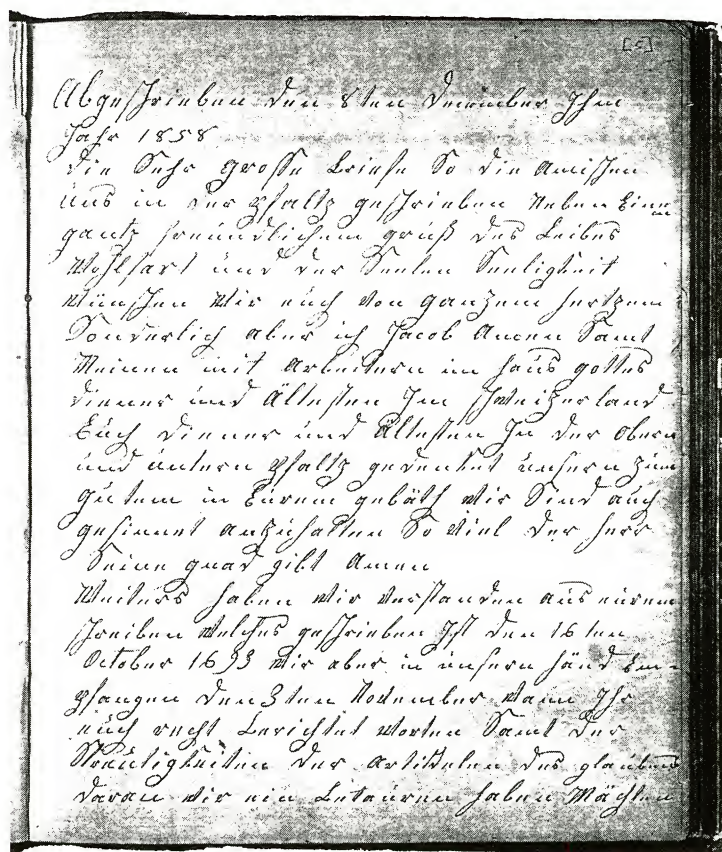 [5]
Abgeschrieben den 8ten December Ihm
Jahr 1858
die Sehr grosse briefe So die Amischen
uns in der pfaltz geschrieben Neben Einem
gantz freundlichem gruß des Leibes
Wohlfart und der Seelen Seeligkeit
wünschen Wir euch von ganzem hertzen
Sonderlich aber ich Jacob Amen Samt
Meinen mit Arbeitern im haus gottes
diener und Ältesten Im schweizerland
Euch diener und Ältesten In der obern
und untern pfaltz gedenket unsern zum
gutem in Eurem gebäth wir Sind auch
gesinnet anzuhalten So viel der herr
Seine gnad gibt Amen
Weiters haben wir verstanden aus eurem
schreiben welches geschrieben Ist den 16 ten
October 1693 wir aber in unsern händ Em-
pfangen den 3 ten November wann Ihr
euch recht berichtet worten Samt der
Streutigkeiten der artickelen des glaubens
daran wir ein betauren haben Möchten